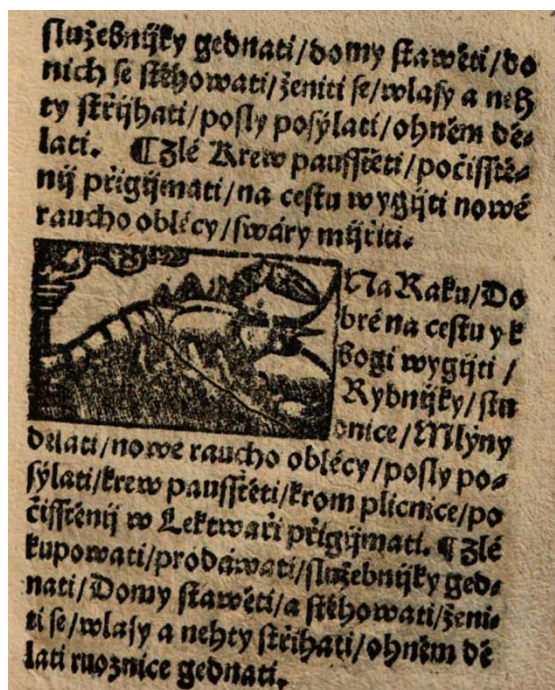 služebnijky gednati/domy stawěti/do
nich se stěhowati/ženiti se/wlasy a neh
ty střijhati/posly posýlati/ohněm dě-
lati. ¶Zlé Krew pausstěti/počisstě-
nij přigijmati/na cestu wygijti nowé
raucho oblécy/swáry mijřiti.
Na Raku/Do
bré na cestu y k
bogi wygijti /
Rybnijky/stu
dnice/Mlýny
dělati/nowé raucho oblécy/posly po-
sýlati/krew pausstěti/krom plicnice/po
čisstěnij w Lektwaři přigijmati. ¶Zlé
kupowati/prodáwati/služebnijky ged-
nati/Domy stawěti/a stěhowati/ženi-
ti se/wlasy a nehty střihati/ohněm dě
lati ruoznice gednati.